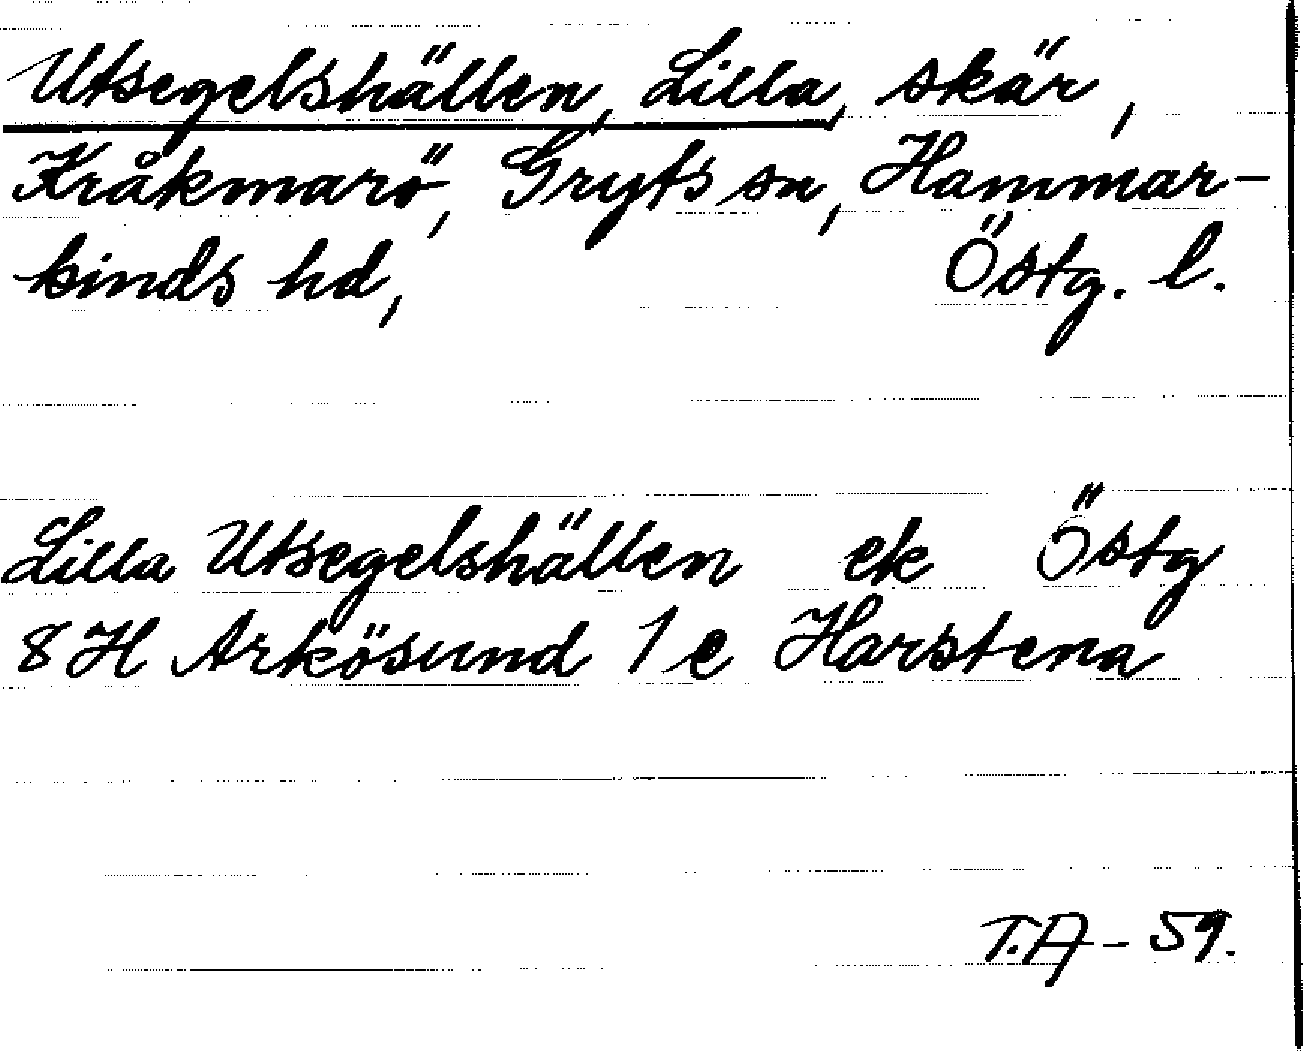 Utsegelshällen, Lilla, skär,
Kråkmarö, Gryts sn, Hammar-
kinds hd, Östg. l.
Lilla Utsegelshällen ek Östg
8H Arkösund 1e Harstena
T.A - 59.